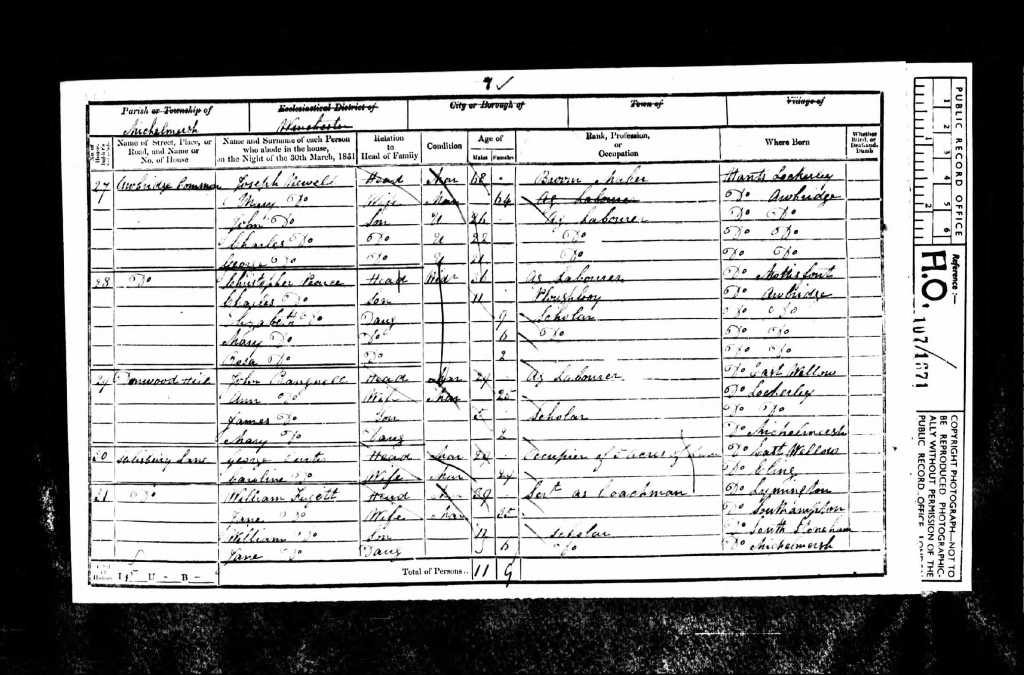 9 ✓
Parish or Township of Ecclesiastical District of City or Borough of Town of Village of
Michelmersh Winchester
Name of Street, Place, or Road, and Name or No. of House
Name and Surname of each Person who abode in the house, on the Night of the 30th March, 1851
Relation to Head of Family
Condition
Age of
Males Females
Rank, Profession, or Occupation
Where Born
Whether Blind, or Deaf-and-Dumb
27 Awbridge Common Joseph Head Mar 68 Broom Maker Hants Lockerley
Mary Do Wife Mar 64 Ag Labourer Do Awbridge
John Do Son U 26 Ag Labourer Do Do
Charles Do Do U 22 Do Do Do
George Do Do U 21 Do Do Do
28 Do Christopher Pearce Head Wider 31 Ag Labourer Do Mottisfont
Charles Do Son 11 Ploughboy Do Awbridge
Elizabeth Do Daug 9 Scholar Do Do
Mary Do Do 6 Do Do Do
Rosa Do Do 2 Do Do
29 John Head Mar 29 Ag Labourer Do East Wellow
Ann Do Wife Mar 25 Do Lockerley
James Do Son 5 Scholar Do Do
Mary Do Daug 2 Do Michelmersh
30 Salisbury Lane George Head Mar 24 Occupier of 5 acres of Do East Wellow
Caroline Do Wife Mar 24 Do Eling
31 Do William Head Mar 39 Servt as Coachman Do Lymington
Jane Do Wife Mar 35 Do Southampton
William Do Son 11 Scholar Do South Stoneham
Jane Do Daug 6 Do Do Michelmersh
U - B -
Total of Persons .. 11 9
PUBLIC RECORD OFFICE
1 2 3 4 5 6
1 2
Reference :-
H.O. 107/1671
COPYRIGHT PHOTOGRAPH—NOT TO
BE REPRODUCED PHOTOGRAPHIC-
ALLY WITHOUT PERMISSION OF THE
PUBLIC RECORD OFFICE, LONDON